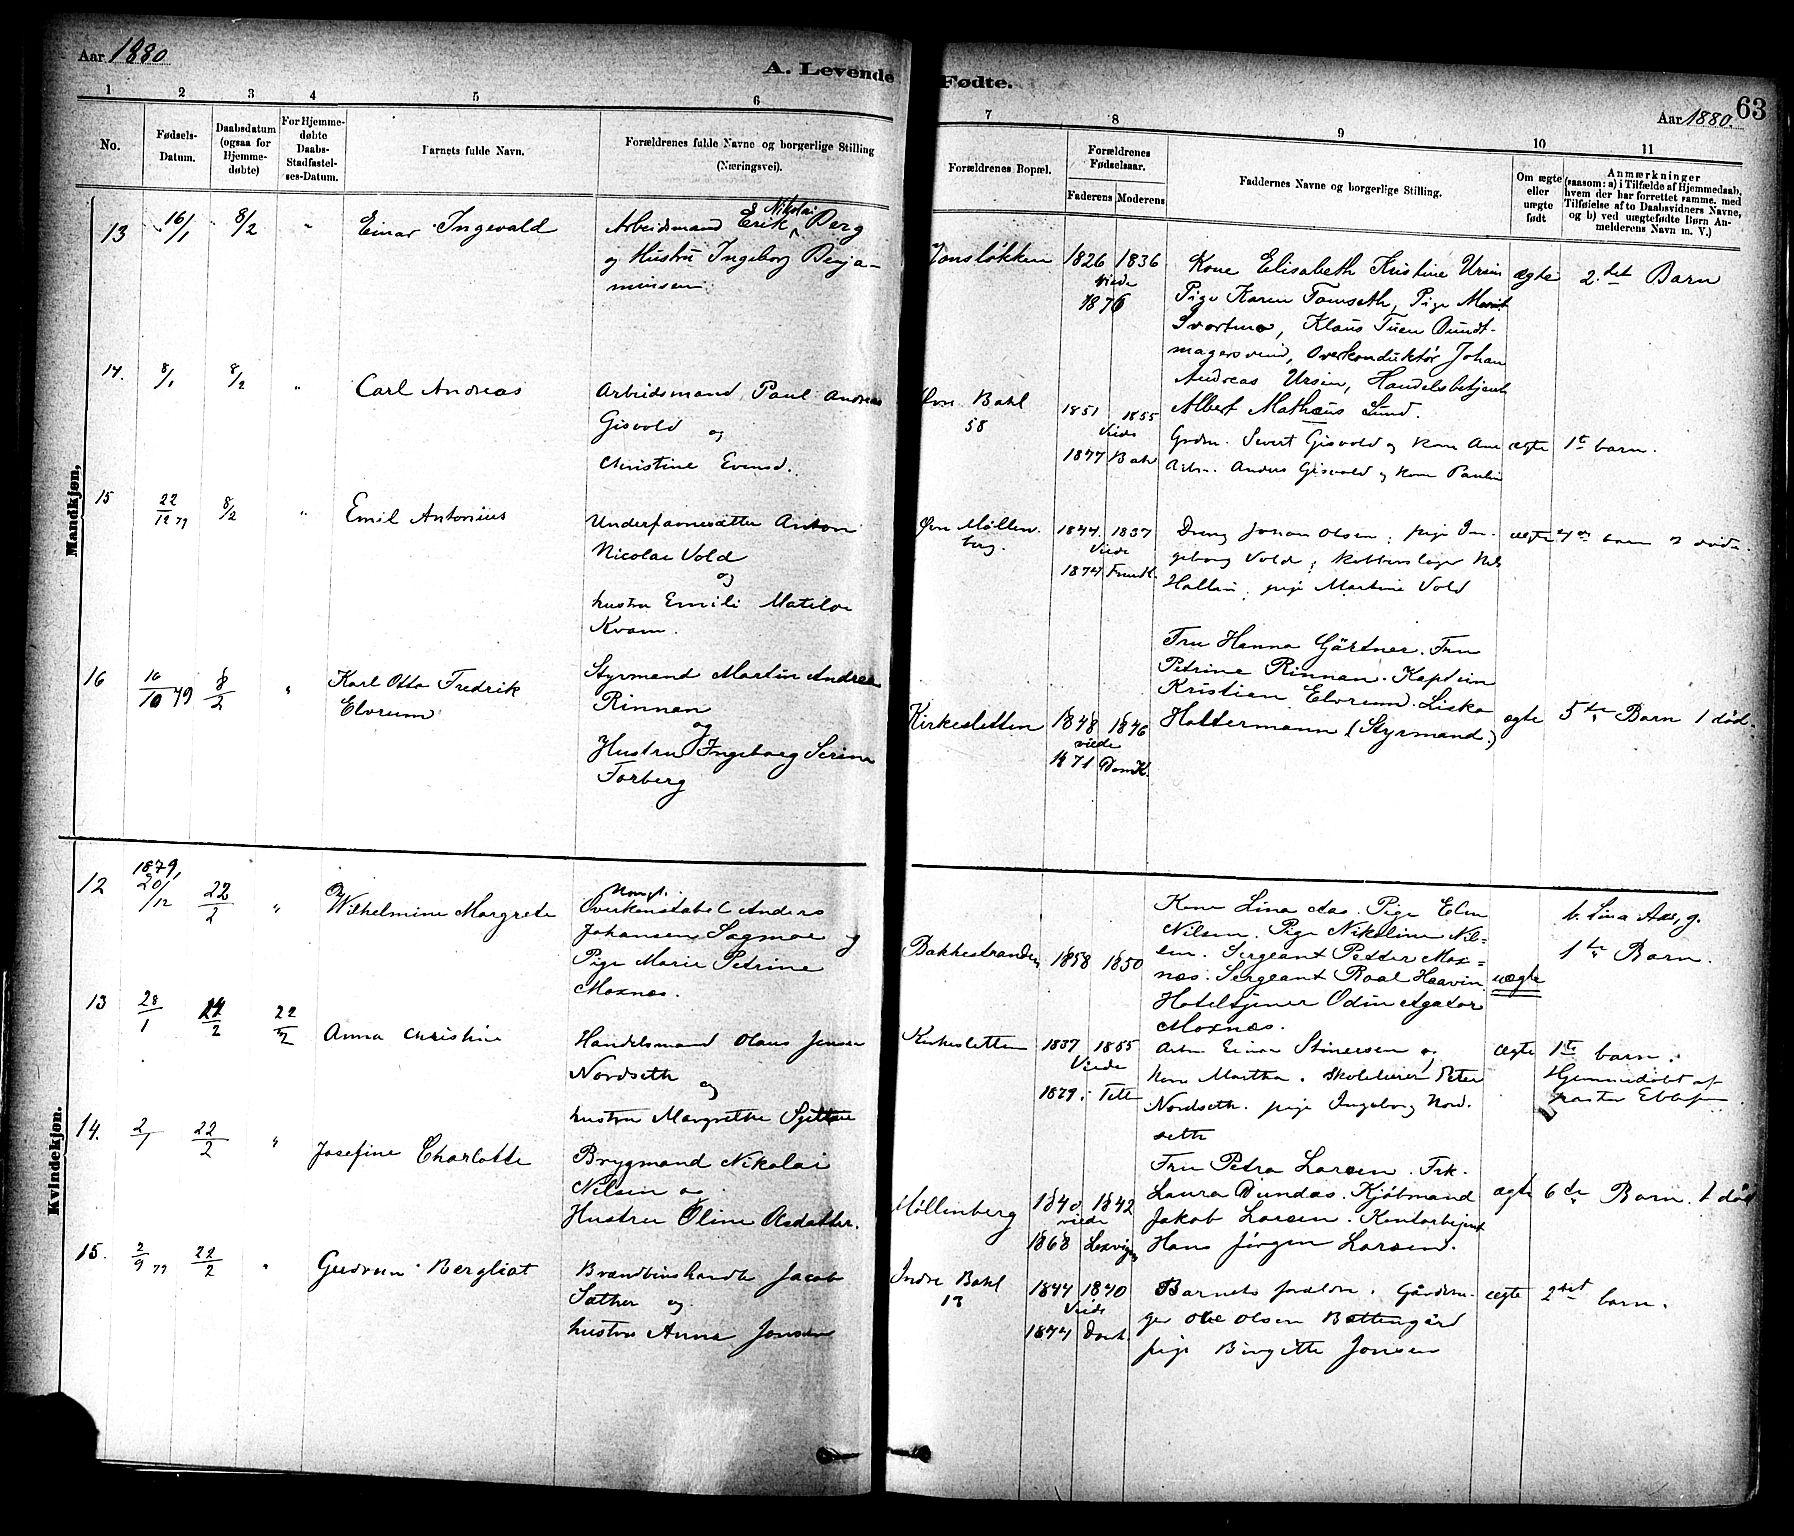 Aar 1880
A. Levende Fødte.
63
Aar 1880.
1 2 3 4 5 6 7 8 9 10 11
No.
Fødsels-
Datum.
Daabsdatum
(ogsaa for
Hjemme-
døbte)
For Hjemme-
døbte
Daabs-
Stadfæstel-
ses-Datum.
Barnets fulde Navn.
Forældrenes fulde Navne og borgerlige Stilling
(Næringsvei).
Forældrenes Bopæl.
Forældrenes
Fødselsaar.
Faderens Moderens
Faddernes Navne og borgerlige Stilling.
Om ægte
eller
uægte
født
Anmærkninger
(saasom: a) i Tilfælde af Hjemmedaab,
hvem der har forrettet samme, med
Tilføielse af to Daabsvidners Navne,
og b) ved uægtefødte Børn An-
melderens Navn m. V.)
Mandkjøn.
13 16/1 8/2 " Einar Ingevald
Arbeidsmand Erik Nikolai Berg
og Hustru Ingeborg Benja-
minsen
Jonsløkken 1826 1836
viede
1876
Kone Elisabeth Kristine Ursin
Pige Karen Tomseth, Pige Marit
Svartmo, Klaus Tuen Bundt-
magersvend, Overkonduktør Johan
Andreas Ursin, Handelsbetjent
Albert Mathæus Lund.
ægte 2.det Barn
14. 8/1 8/2 " Carl Andreas
Arbeidsmand Paul Andreas
Gisvold
og
Christine Evensd.
Øvre Bakl
58
1851 1855
Viede
1877 Bakl
Grdm. Sivert Gisvold og kone Ane
Arbm. Anders Gisvold og kone Paulin
ægte 1te barn.
15 22/12 79 8/2 " Emil Antonius
Underfavnesætter Anton
Nicolai Vold
og
hustru Emili Matilde
Kvam.
Øvre Møllen
berg.
1844 1837
Viede
1874
Dreng Johan Olsen; pige In-
geborg Vold; kobberslager Nils
Hallin, pige Martine Vold
ægte 4de barn
16 10/10 79 8/2 " Karl Otto Fredrik
Elvrum
Styrmand Martin Andreas
Rinnan
og
Hustru Ingeborg Serine
Forberg
Kirkesletten 1848 1846
viede
1871 DomK.
Fru Hanna Gärtner. Fru
Petrine Rinnan. Kaptein
Kristian Elvrum. Liska
Haltermann (Styrmand.)
ægte 5te Barn 1 død.
Kvindekjøn.
12 1879, 20/12 22/2 " Wilhelmine Margrete
Overkonstabel Anders
Johansen Sagmoe og
Pige Marie Petrine
Moxnæs.
Bakkestranden 1858 1850
Kone Lina Aas. Pige Elen
Nilsen. Pige Nikoline Nil-
sen. Sergeant Petter Mox-
næs. Sergeant Roal Haavin
Hoteltjener Odin Agator
Moxnæs.
uægte
v. Lina Aas, g.
1te Barn.
13 28/1 14/2 22/2 Anna Christine
Handelsmand Olaus Jensen
Nordseth
og
hustru Margrethe
Kirkesletten 1837 1855
Viede
1879.
Arbm Einar Stinersen og
kone Martha. skolelærer Peter
Nordseth. pige Ingeborg Nord-
seth
ægte 1te barn.
Hjemmedøbt af
pastor
14. 2/1 22/2 " Josefine Charlotte
Brygmand Nikolai
Nilsen og
Hustru Oline Olsdatter.
Møllenberg 1840 1842
viede
1868 Lexvigen
Fru Petra Larsen. Frk.
Laura Dundas. Kjøbmand
Jakob Larsen. Kontorbetjent
Hans Jørgen Larsen.
ægte 6te Barn. 1 død
15. 2/9 79 22/2 " Gudrun Bergliot
Brændevinshandler Jacob
Sæther og
hustru Anna Jonsen
Indre Bakl
13
1844 1840
Viede
1874 Domk.
Barnets forældre. Gårdbru-
ger Ole Olsen Bottengård
pige Birgitte Jonsen
ægte 2det barn.